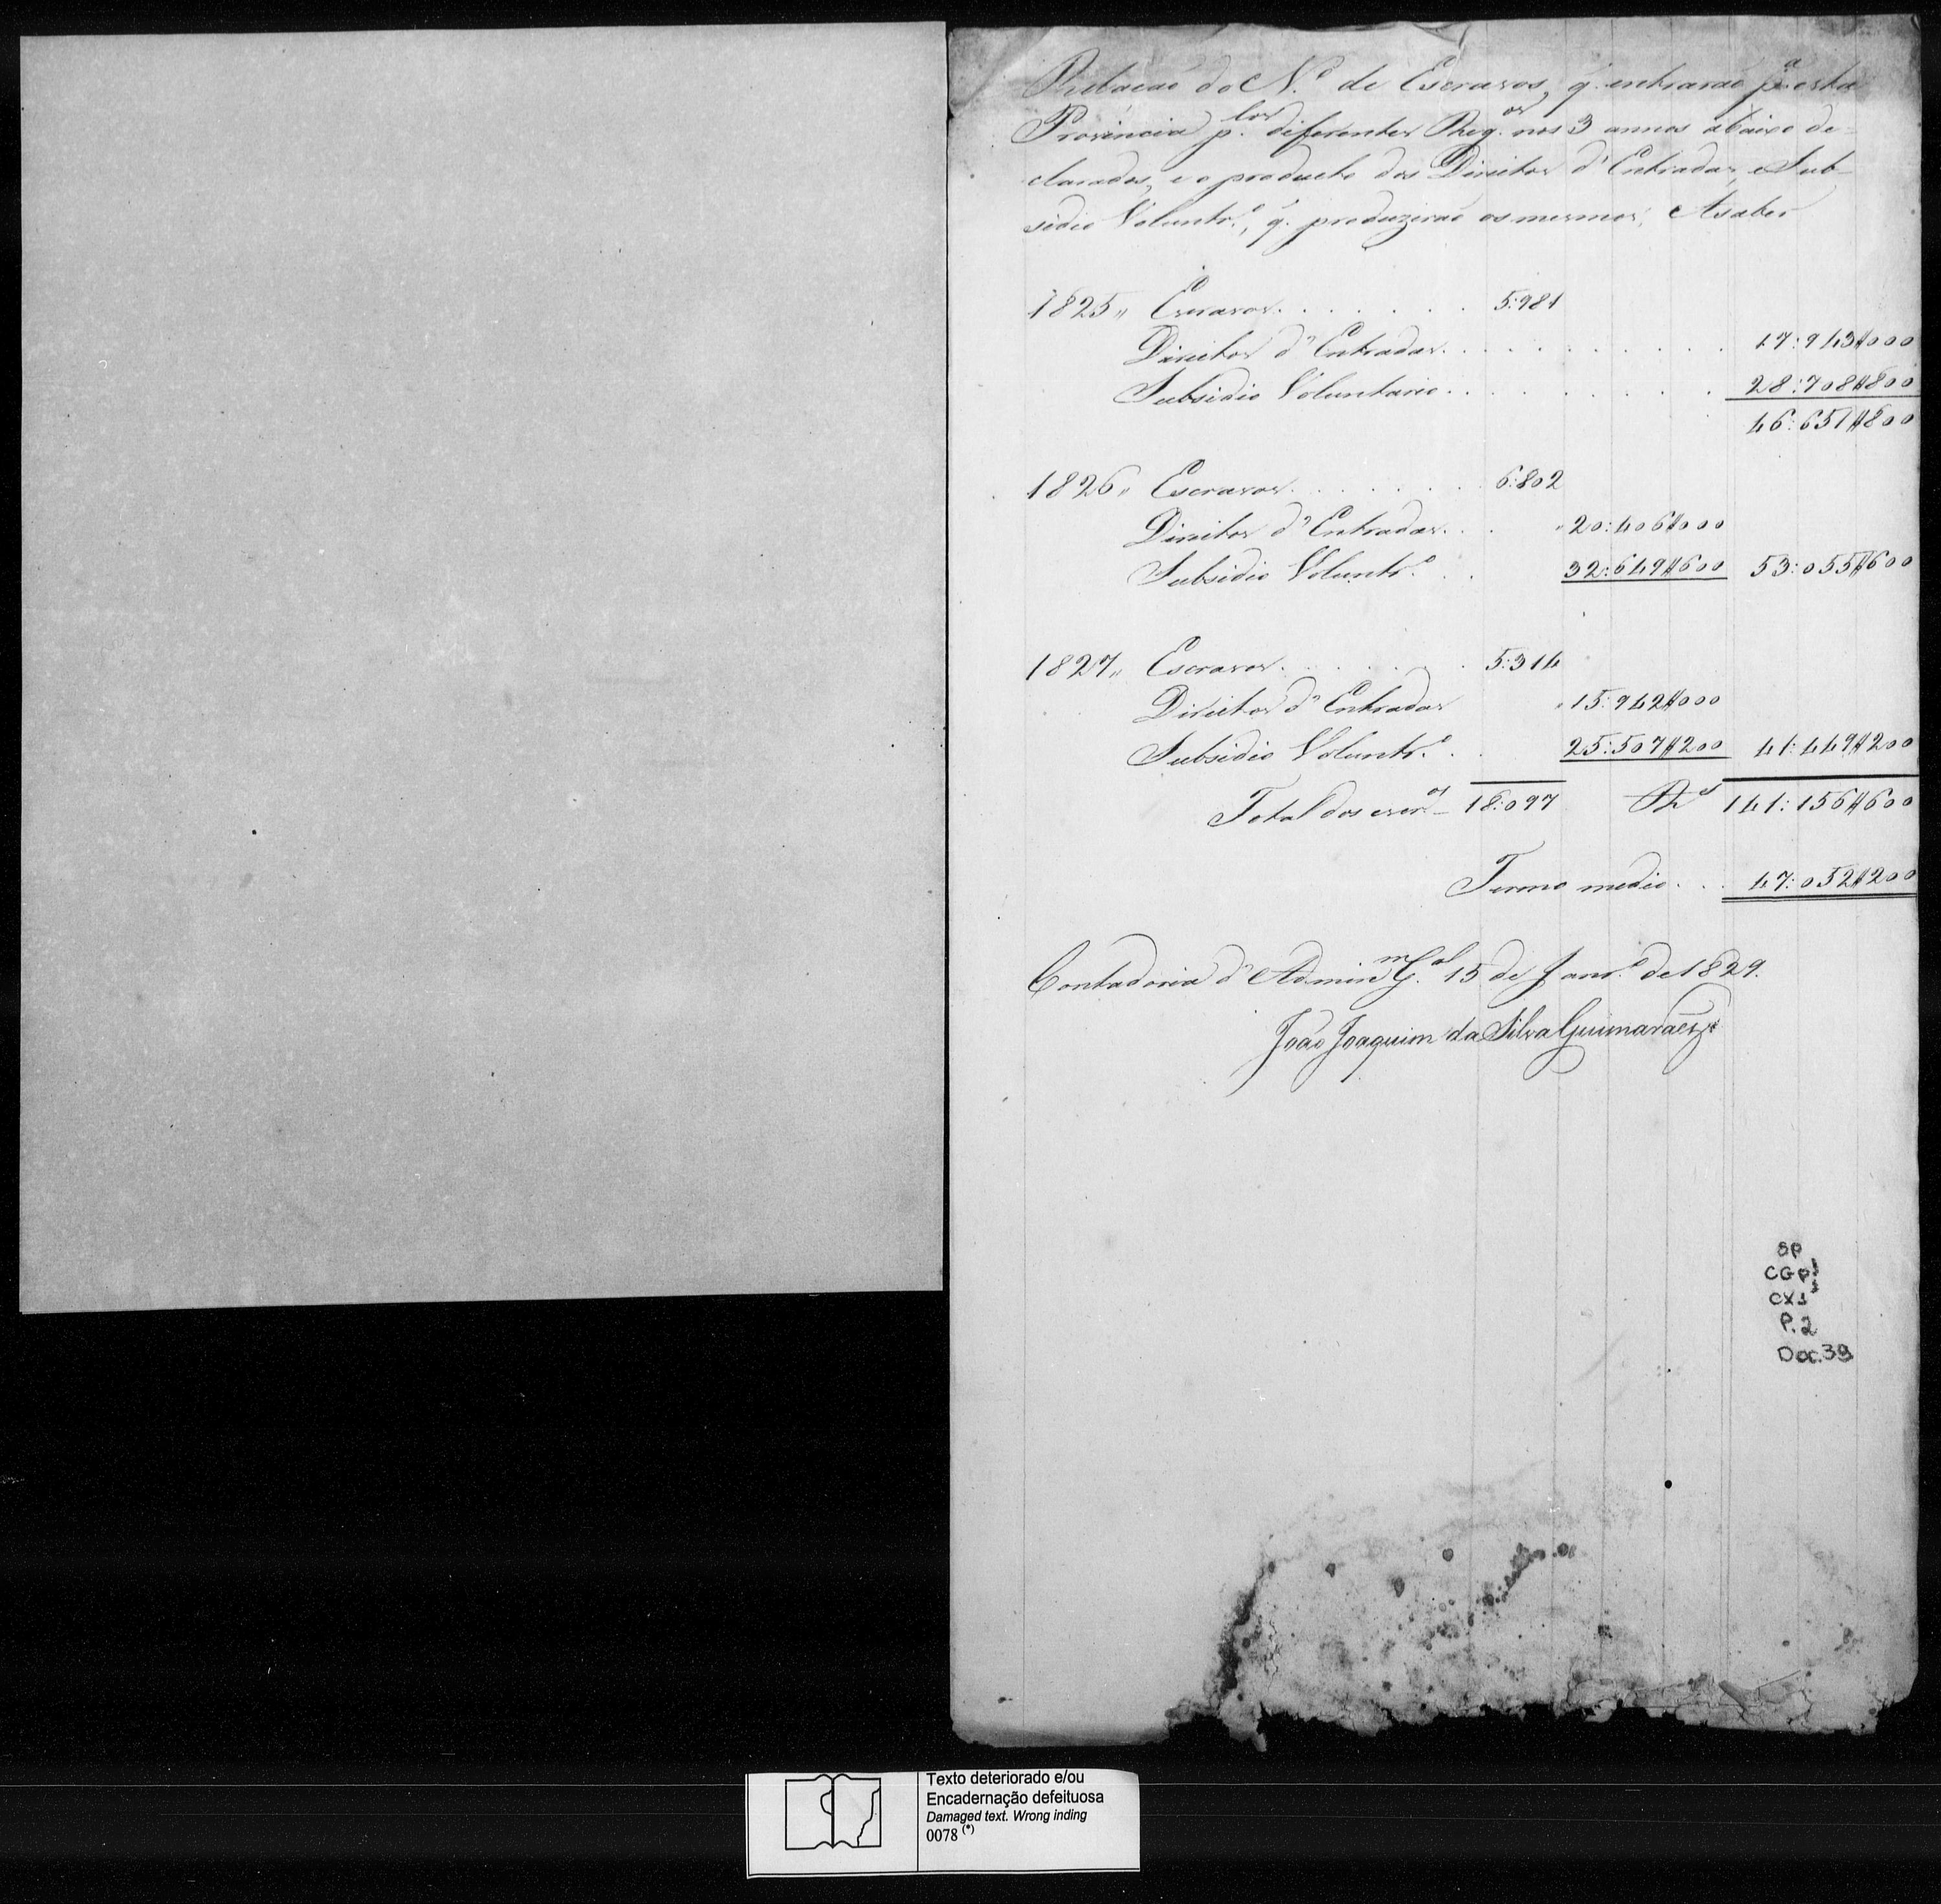 Relação do N.º de Escravos, q. entrarão p.ª esta
Provincia p.los diferentes Reg.os nos 3 annos abaixo de=
clarados, e o producto dos Direitos d'Entradas, e Sub-
sidio Voluntr.º, q. produzirão os mesmos; Asaber
1825,, Escravos. . . . . . . 5:981
Direitos d'Entradas. . . . . . . . . . . 17:943$000
Subsidio Voluntario. . . . . . . . . 28:708$800
46:651$800
1826,, Escravos. . . . . . . 6:802
Direitos d'Entradas. . . 20:406$000
Subsidio Voluntr.º . . 32:649$600 53:055$600
1827,, Escravos. . . . . . . 5:314
Direitos d'Entradas 15:942$000
Subsidio Voluntr.º . 25:507$200 41:449$200
Total dos escr.os – 18:097 Rs 141:156$600
Termo medio . . . 47:052$200
Contadoria d'Admin.m G.al 15 de Janr.º de 1829.
João Joaquim da Silva Guimarães
SP
CGP1
CX1
P.2
Doc.39
Texto deteriorado e/ou
Encadernação defeituosa
Damaged text. Wrong inding
0078 (*)